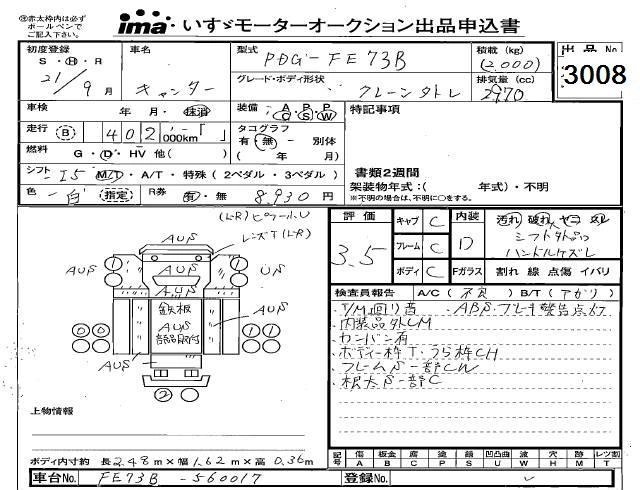 ※赤太枠内は必ず
ボールペンで
ご記入下さい。
ima いすゞモーターオークション出品申込書
初度登録
S・H・R
21/9月
車名
キャンター
型式
PDG-FE73B
グレード・ボディ形状
クレーン外レ
積載 (kg)
(2,000)
排気量 (cc)
2970
出品No
3008
車検
年・月・抹消
装備
A P P
C S W
特記事項
走行
B 402,000km
タコグラフ
有・無・別体
(年 月)
燃料
G・D・HV 他( )
シフト
I5 M/T・A/T・特殊(2ペダル・3ペダル)
書類2週間
架装物年式:( 年式)・不明
※不明の場合は、不明に○をする。
色
白 指定
R券
有・無
8,930円
評価
3.5
キャブ C
フレーム C
ボディ C
内装
D
Fガラス
汚れ 破れ ヤニ スレ
シフト外品
ハンドルケズレ
割れ 線 点傷 イバリ
(L-R)ピラー小U
レンズT(L-R)
AUS
AUS
AUS
AUS
AUS
US
鉄板
AUS
部品取付
AUS
1 1
1 1
0 0
0 0
2
検査員報告 A/C(不良) B/T(アガリ)
T/M回り音 ABS ブレーキ警告点灯
内装品外しM
カンバン有
ボディー枠T・うら枠CH
フレームS一部CW
根太S一部C
上物情報
ボディ内寸約 長2.48m×幅1.62m×高0.36m
記号
傷 A
板金 B
腐 C
塗 P
錆 S
凹凸曲 U
波 W
穴 H
跡 M
レンズ割 T
車台No.
FE73B-560017
登録No.